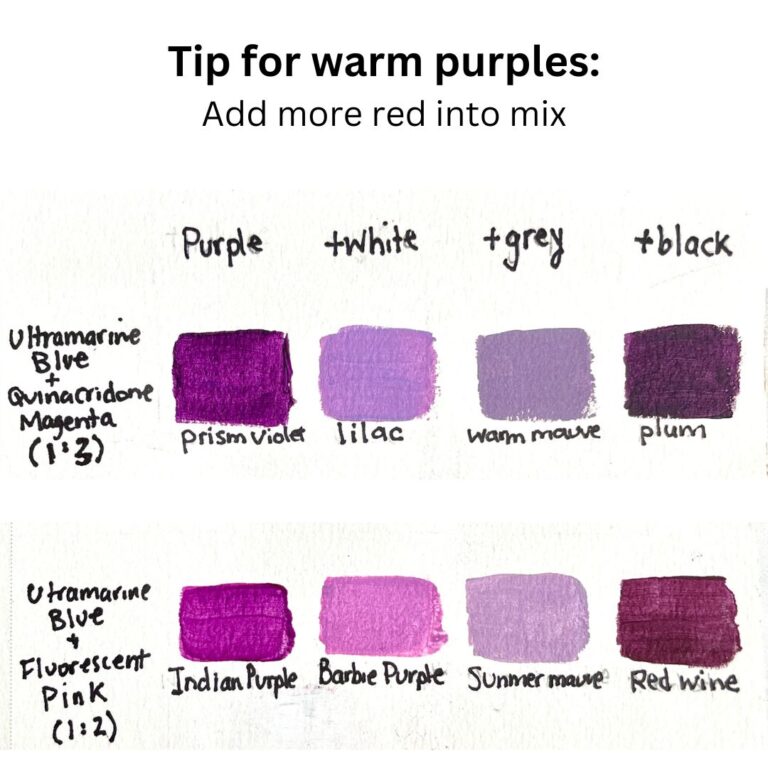 Tip for warm purples:
Add more red into mix
Purple +white +grey +black
Ultramarine
Blue
+
Quinacridone
Magenta
(1:3)
prism violet lilac warm mauve plum
Utramarine
Blue
+
Fluorescent
Pink
(1:2)
Indian Purple Barbie Purple Summer mauve Red wine